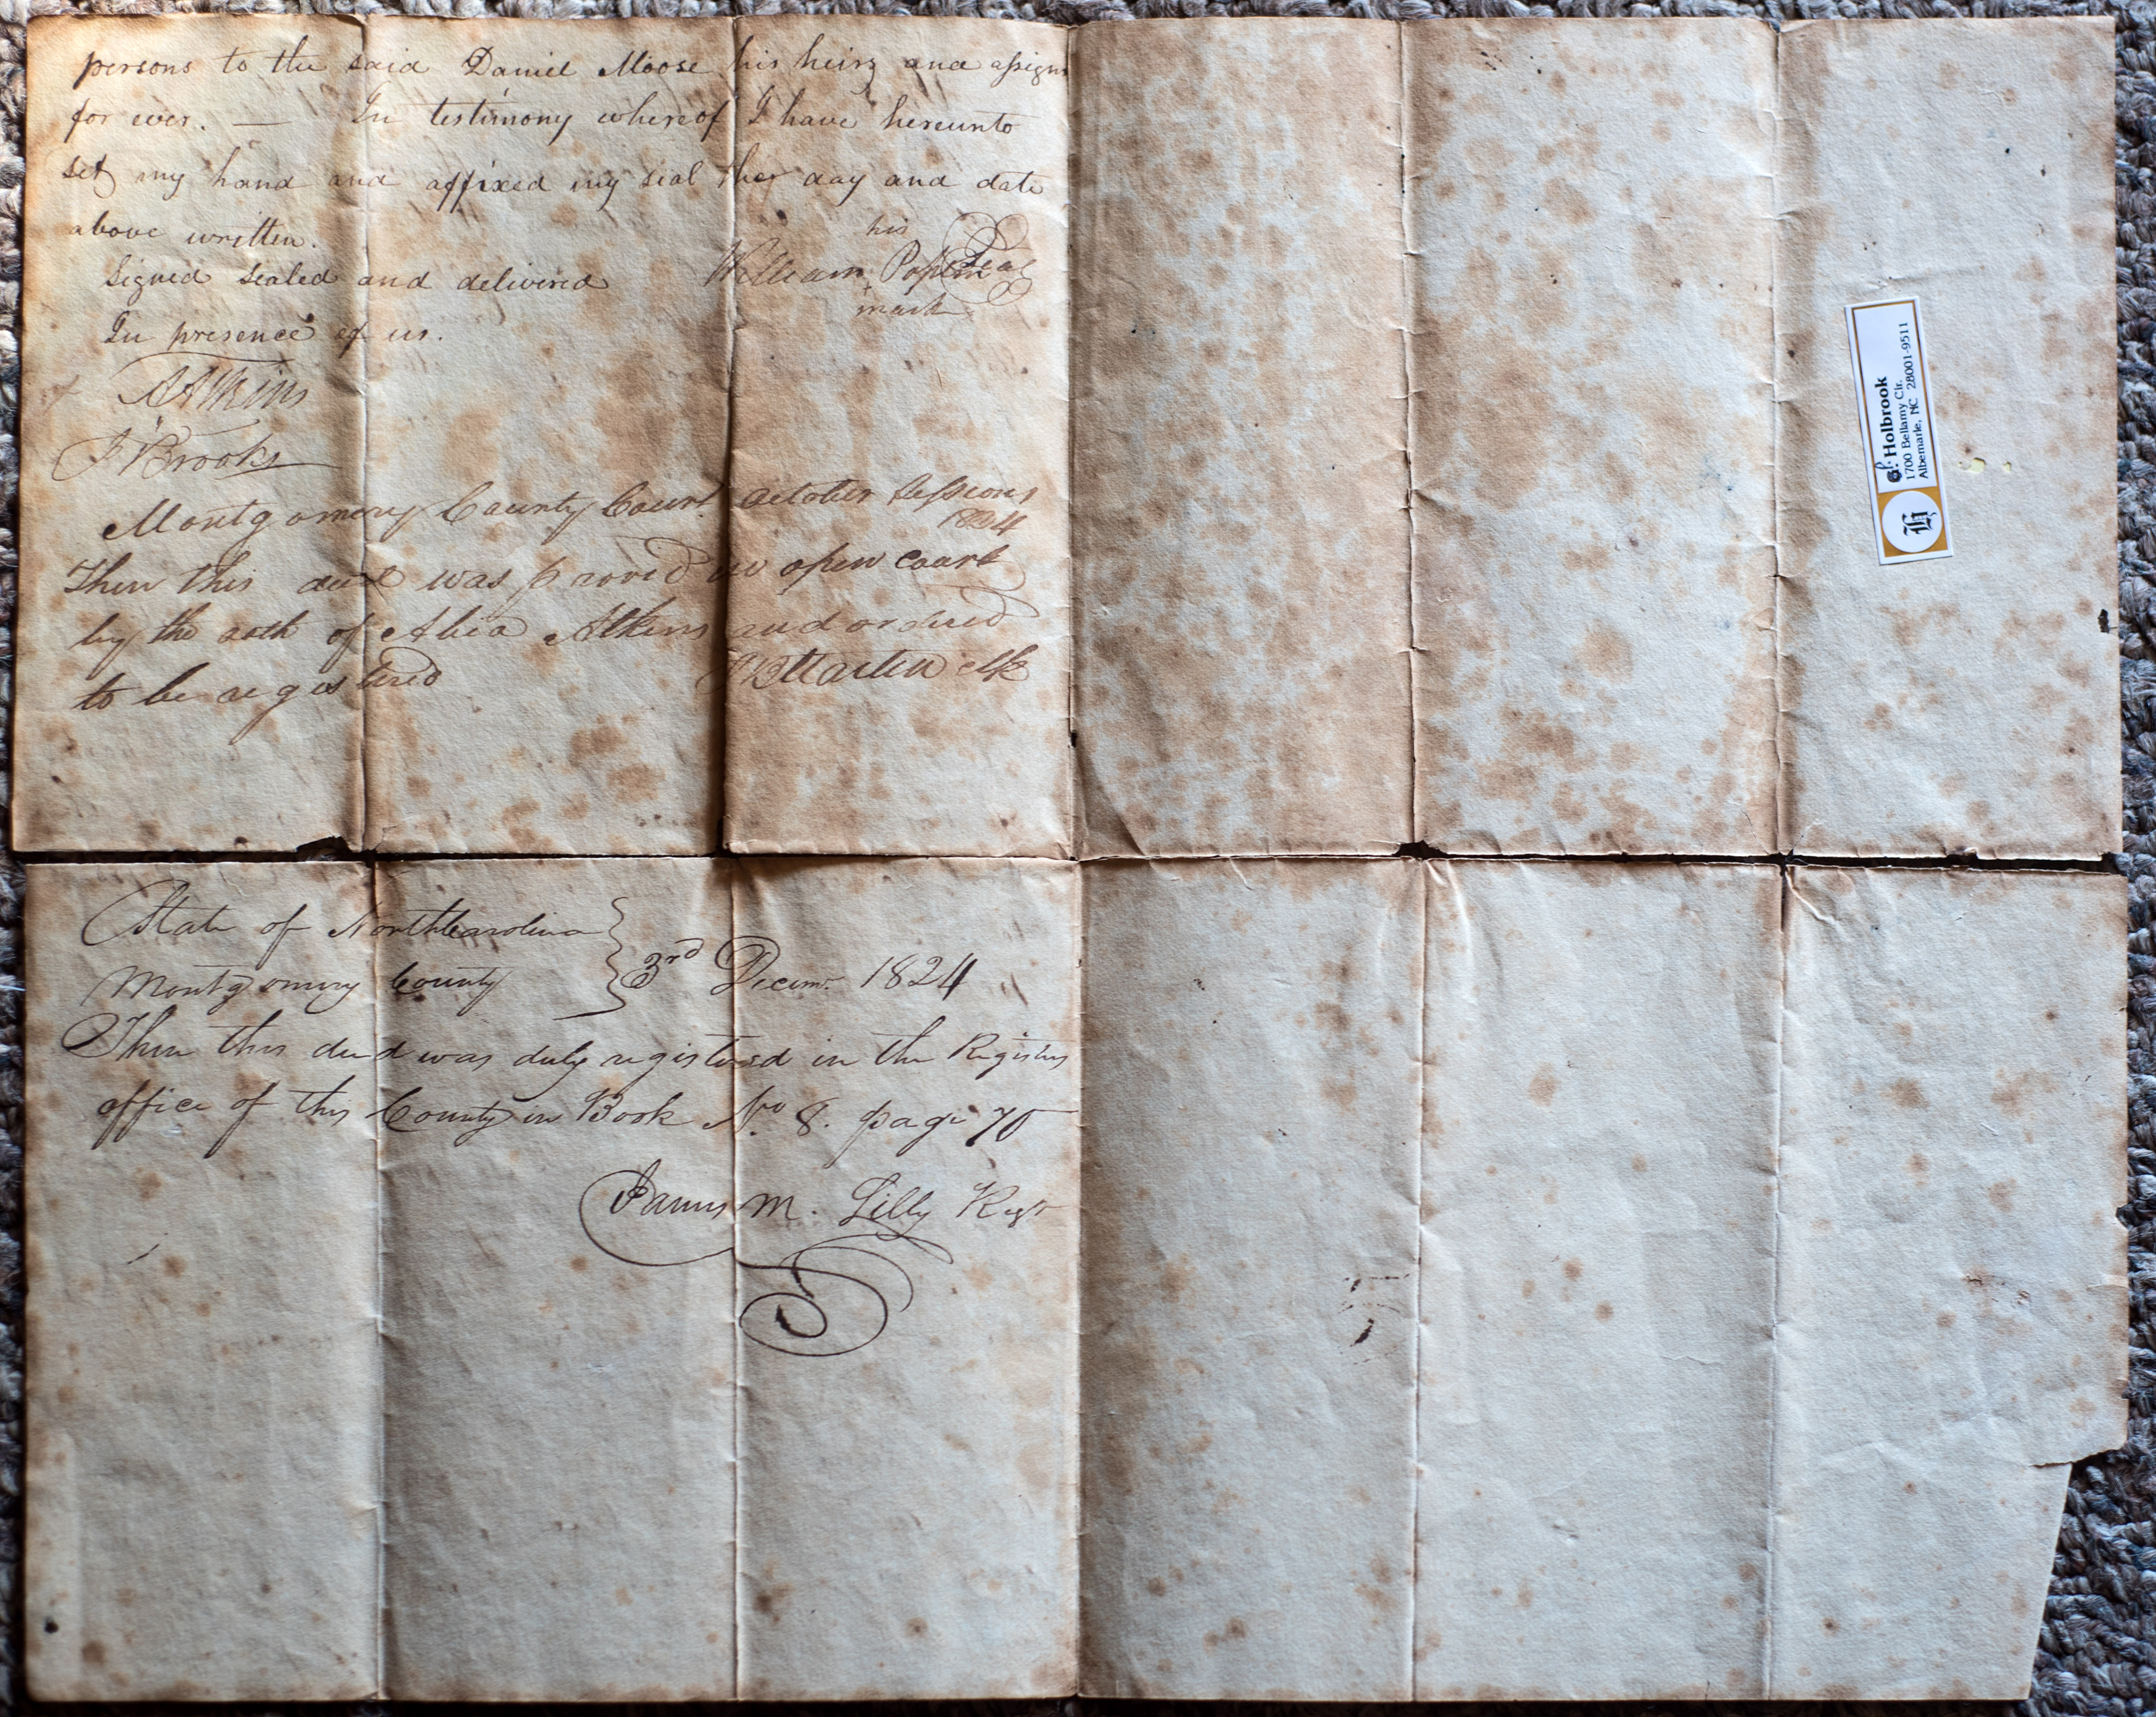 persons to the said Daniel Moose his heirs and assigns
for ever. — In testimony whereof I have hereunto
set my hand and affixed my seal the day and date
above written.
Signed sealed and delivered
In presence of us.
his
William Poplin Seal
+
mark
A Atkins
J Brooks
Montgomery County Court october Sessions
1824
Then this deed was proved in open court
by the oath of Atkins and ordered
to be registered
Martin clk
State of North Carolina
Montgomery County } 3rd Decemr. 1824
Then this deed was duly registered in the Registers
office of this County in Book No 8. page 70
James M. Lilly Regr
Holbrook
1700 Bellamy Cir.
Albemarle, NC 28001-9511
H